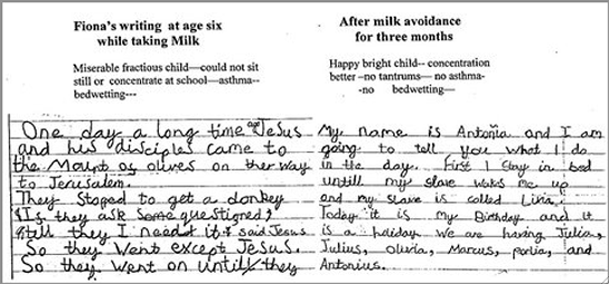 Fiona's writing at age six
while taking Milk
Miserable fractious child—could not sit
still or concentrate at school—asthma--
bedwetting---
One day a long time ago Jesus
and his disciples came to
the Mount of olives on ther way
to Jerusalem.
They Stoped to get a donkey
If they ask some questigned,
tell they I need it said Jesus
So they Went except Jesus.
So they went on untill they
After milk avoidance
for three months
Happy bright child-- concentration
better –no tantrums— no asthma-
-no bedwetting—
My name is Antonia and I am
going to tell you what I do
in the day. First I stay in bed
untill my slave wakes me up
and my slave is called Livia.
Today it is my Birthday and it
is a holiday we are having Julia,
Julius, olivia, Marcus, portia, and
Antonius.